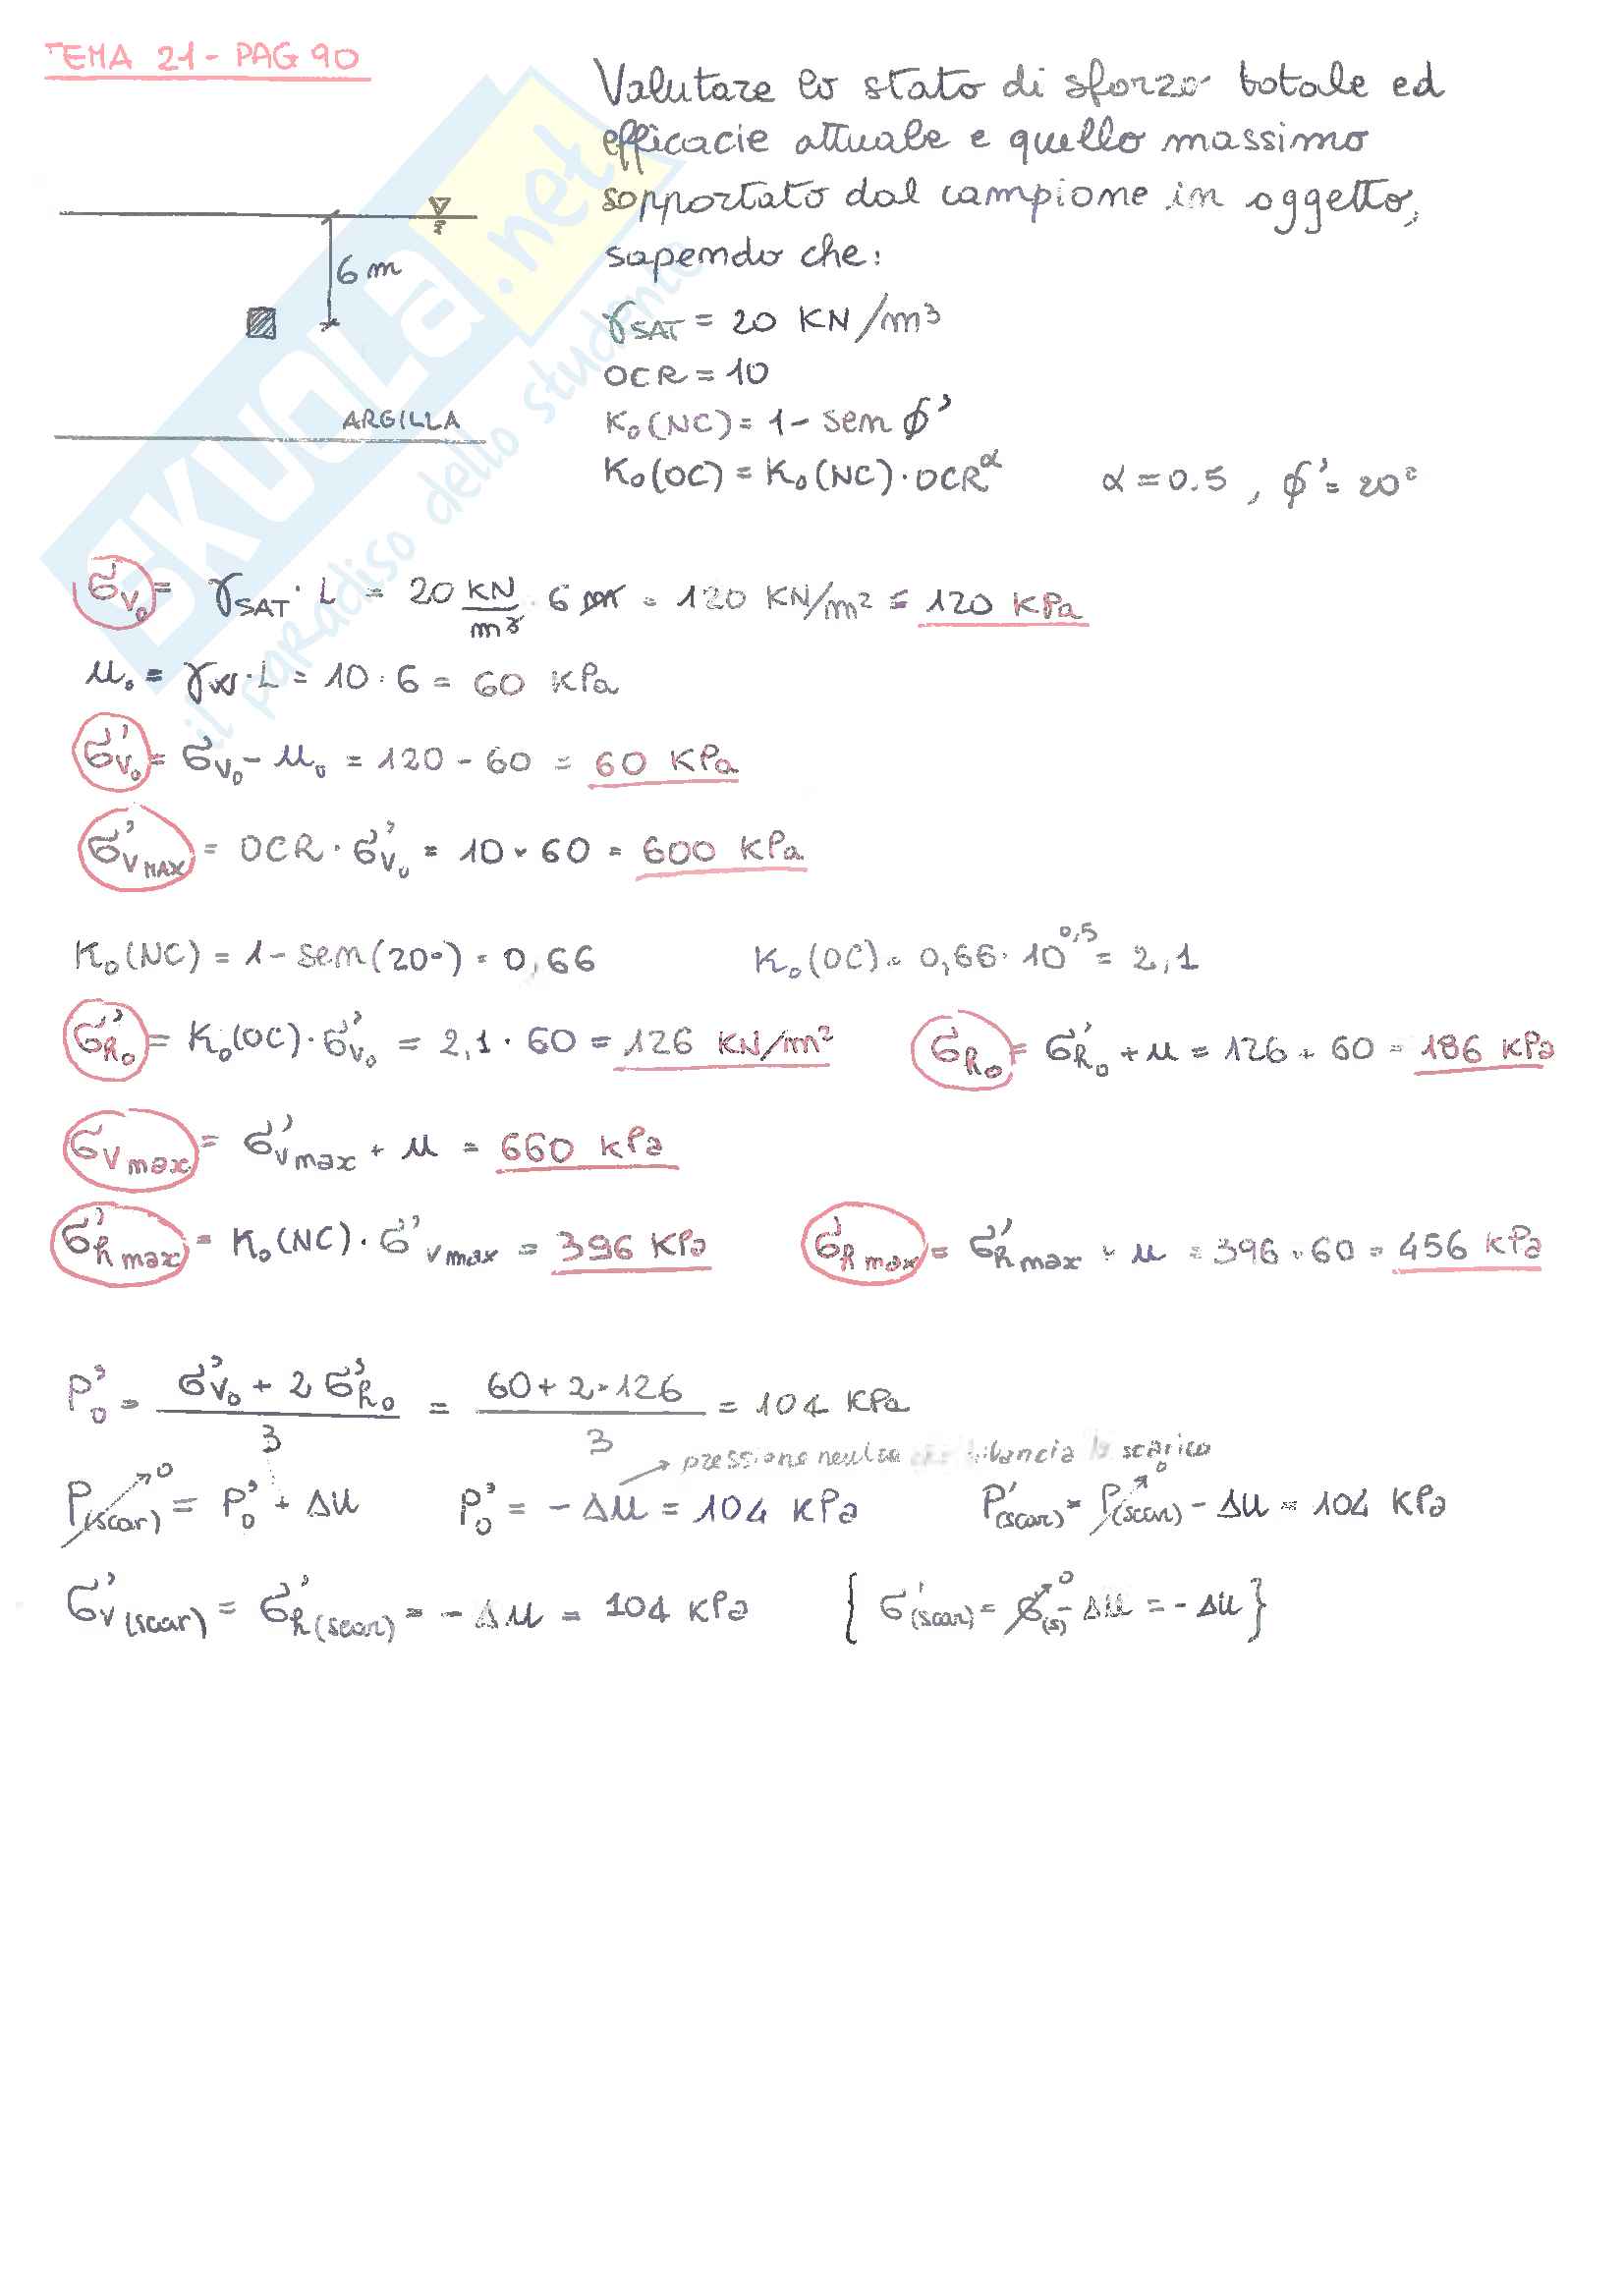 TEMA 21 - PAG 90
Valutare lo stato di sforzo totale ed
efficacie attuale e quello massimo
sopportato dal campione in oggetto,
sapendo che:
6 m
γSAT = 20 KN/m³
OCR = 10
ARGILLA
K₀(NC) = 1 - sen ϕ'
K₀(OC) = K₀(NC) · OCR^α α = 0.5 , ϕ' = 20°
SKUOLA.net
il paradiso dello studente
σv₀ = γSAT · L = 20 KN/m³ · 6 m = 120 KN/m² = 120 KPa
u₀ = γw · L = 10 · 6 = 60 KPa
σ'v₀ = σv₀ - u₀ = 120 - 60 = 60 KPa
σ'vMAX = OCR · σ'v₀ = 10 · 60 = 600 KPa
K₀(NC) = 1 - sen(20°) = 0,66 K₀(OC) = 0,66 · 10^0,5 = 2,1
σ'h₀ = K₀(OC) · σ'v₀ = 2,1 · 60 = 126 KN/m² σh₀ = σ'h₀ + u = 126 + 60 = 186 KPa
σvmax = σ'vmax + u = 660 KPa
σ'hmax = K₀(NC) · σ'vmax = 396 KPa σhmax = σ'hmax + u = 396 + 60 = 456 KPa
P'₀ = (σ'v₀ + 2 σ'h₀)/3 = (60 + 2 · 126)/3 = 104 KPa
pressione neutra che bilancia lo scarico
P(scar) → 0 = P'₀ + Δu P'₀ = - Δu = 104 KPa P'(scar) = P(scar) → 0 - Δu = 104 KPa
σ'v(scar) = σ'h(scar) = - Δu = 104 KPa { σ'(scar) = σ(s) → 0 - Δu = - Δu }